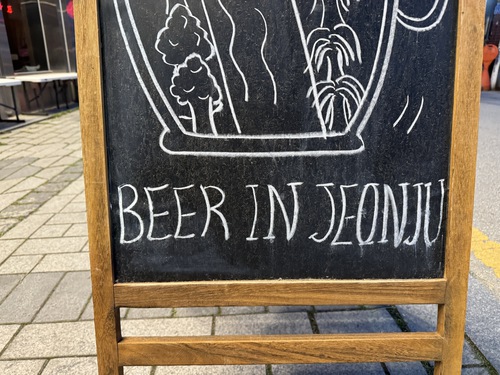 BEER IN JEONJU